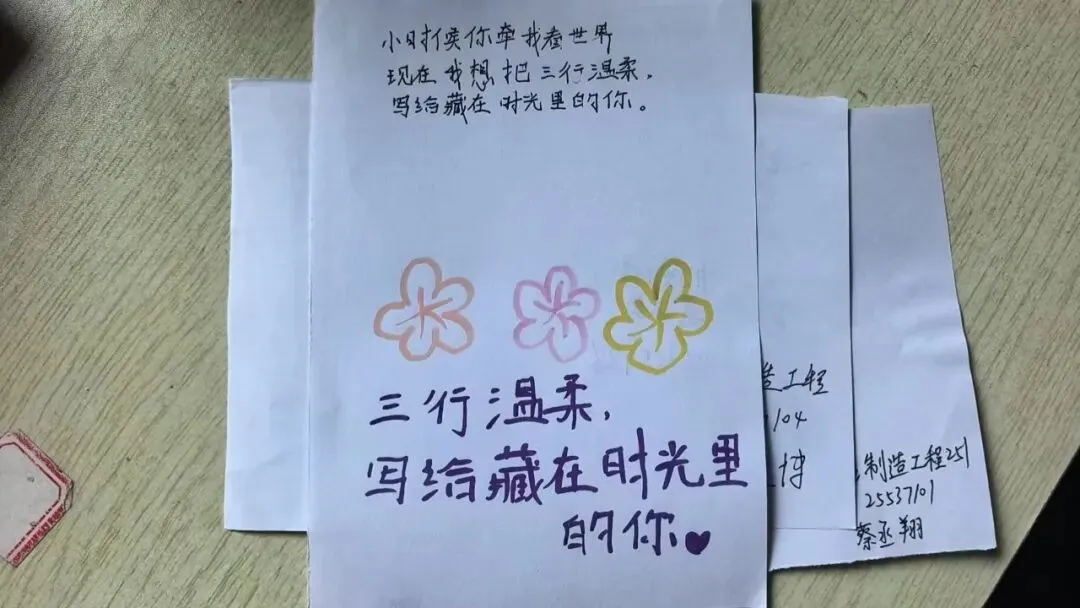 小时候你牵我看世界
现在我想把三行温柔，
写给藏在时光里的你。
三行温柔，
写给藏在时光里
的你
造工程
104
博
制造工程251
25537101
蔡丞翔